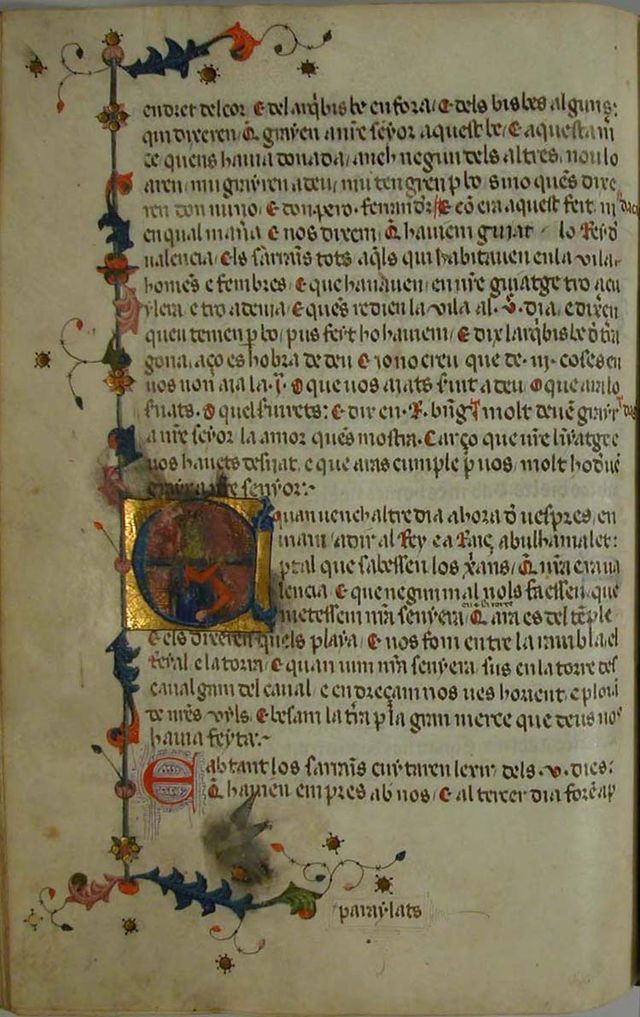 endret del cor. E del arq̃bisbe en fora / E dels bisbes alguns:
qui dixeren. Q̃ grayen a nr̃e seyor aquest be / E aquesta m̃
ce quens hauia donada / anch negun dels altres / nou lo
aren / niu grayren a deu / niu tengren ꝑ bo / sino ques dixe
ren don nuno / E don ꝑero . ferrandꝫ / E cō era aquest feit . ni
en qual man̄a E nos dixem / Q̃ hauiem guiat lo Rey đ
ualencia / E els sarrain̄s tots aq̃ls qui habitauen en la vila
homēs e fembres / E que hauauen / en nr̃e guiatge tro a cu
ylera / e tro a denia / E ques redien la vila al . v̄ . dia / e dixen
quen temen ꝑ bo / pus feyt ho hauiem / E dix larq̃bisbe đ t̃ra
gona / aço es hobra de deu E io no creu que de . iii . coses en
uos non aia la . ī . O que uos aiats siuit a deu O que an lo
siuats . O quel siuirets : E dix en . R . būg̃ molt deuē grayr
a nr̃e seyor la amor ques mostra . E arço que nr̃e linyatge e
uos hauets desijat / e que aras cumple ꝑ uos / molt ho deuē
grayr a nr̃e senyor :-
E quan uench altre dia a hora đ uespres / en
uiam / a dir al Rey e a Raiç abulhamalet :
ꝑ tal que sabessen los x̄ans / Q̃ nr̃a era ua
lencia E que negun mal nols faessen / que
metessem nr̃a senyera . Q̃ ara es del tēple
E els dixeren quels playa / E nos fom entre la rambla / el
reyal e la torra / E quan uim nr̃a senyera sus en la torre des
caualgam del caual e endreçam nos ues horient / e ploram
de nr̃es vyls . E besam la t̃ra ꝑ la gran merce que deus nos
hauia feyta :-
E ab tant los sarrain̄s cuytaren lexir dels . v . dies :
Q̃ hauien empres ab nos / E al tercer dia forē aꝑ
paraylats